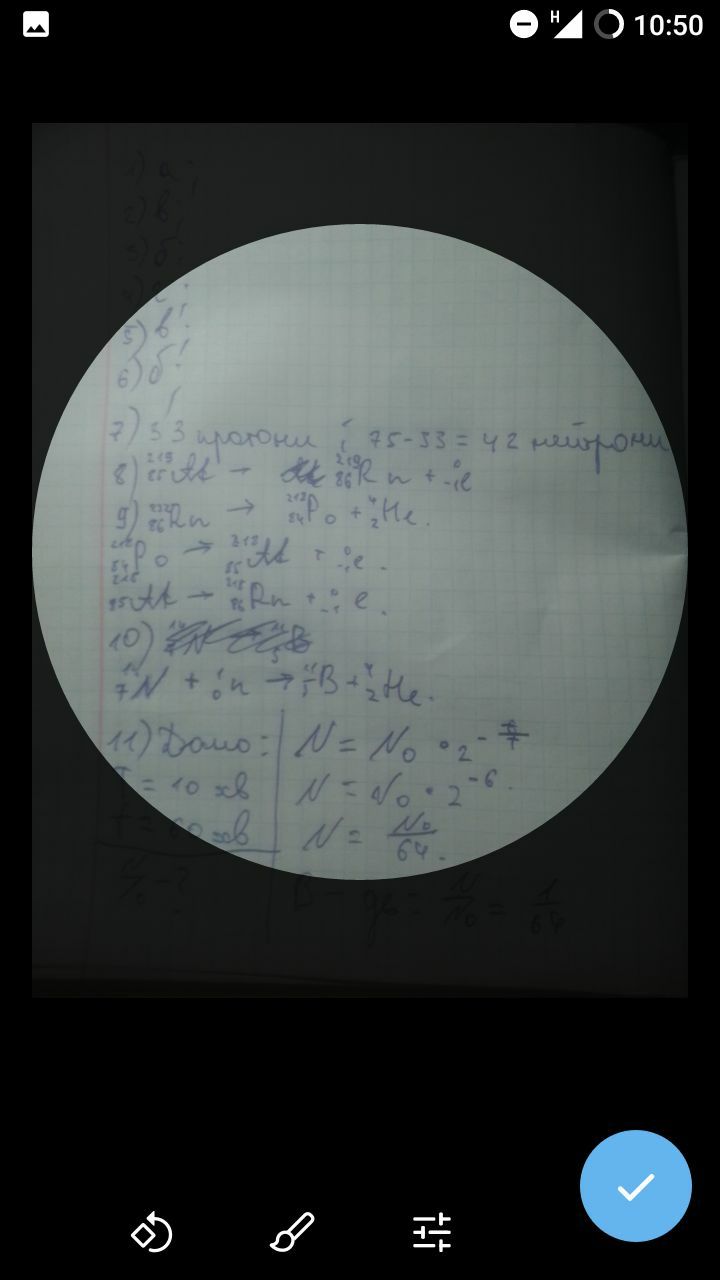 10:50
1) а;
2) в;
3) б;
5) в;
6) б;
7) 33 протони і 75-33 = 42 нейтрони
8) ²¹⁹₈₅At → ²¹⁹₈₆Rn + ⁰₋₁e
9) ²²²₈₆Rn → ²¹⁸₈₄Po + ⁴₂He.
²¹⁸₈₄Po → ²¹⁸₈₅At + ⁰₋₁e.
²¹⁸₈₅At → ²¹⁸₈₆Rn + ⁰₋₁e.
10)
¹⁴₇N + ¹₀n → ¹¹₅B + ⁴₂He.
11) Дано: N = N₀ · 2^(-t/T)
T = 10 хв N = N₀ · 2⁻⁶.
t = 60 хв N = N₀/64.
N/N₀ - ? В-дь: N/N₀ = 1/64